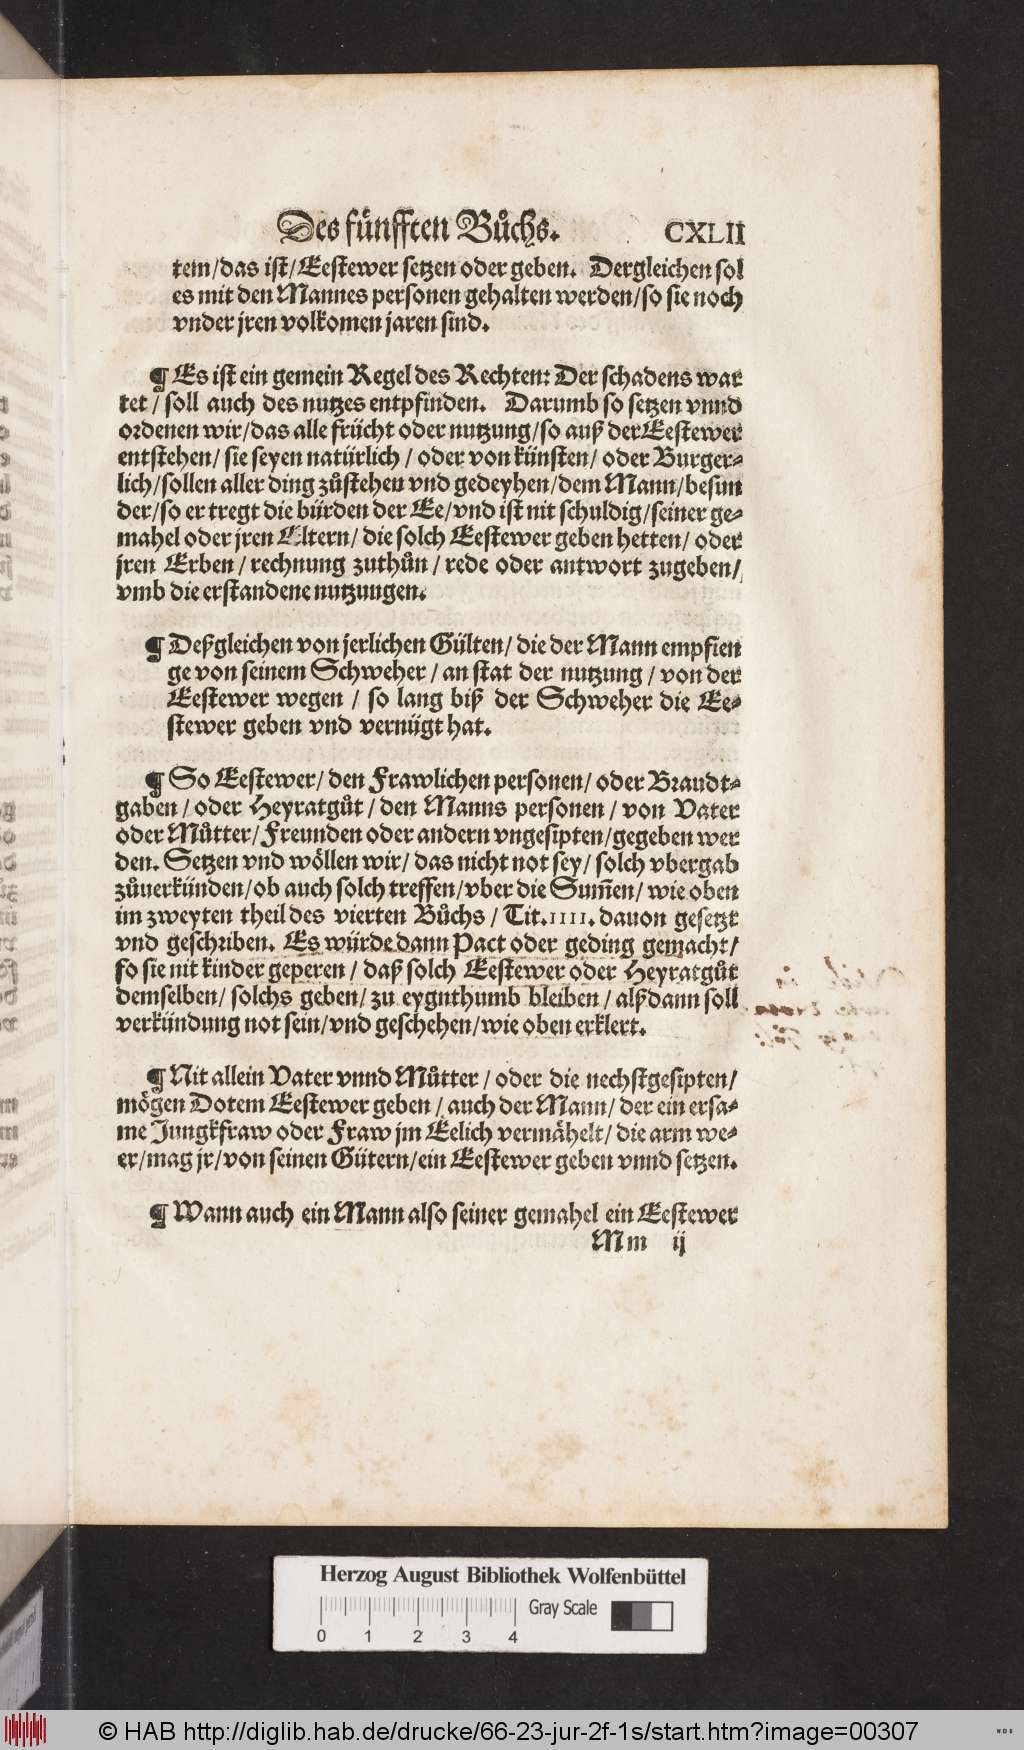 Des fünfften Bůchs. CXLII
tem/das ist/Eestewer setzen oder geben. Dergleichen sol
es mit den Mannes personen gehalten werden/so sie noch
vnder jren volkomen jaren sind.
¶ Es ist ein gemein Regel des Rechten: Der schadens war
tet / soll auch des nutzes entpfinden. Darumb so setzen vnnd
ordenen wir/das alle frücht oder nutzung/so auß der Eestewer
entstehen/ sie seyen natürlich / oder von künsten/ oder Burger⸗
lich/sollen aller ding zůstehen vnd gedeyhen/dem Mann/besun
der/so er tregt die bürden der Ee/vnd ist nit schuldig/seiner ge⸗
mahel oder jren Eltern/ die solch Eestewer geben hetten/ oder
jren Erben / rechnung zuthůn / rede oder antwort zugeben/
vmb die erstandene nutzungen.
¶ Deßgleichen von jerlichen Gülten/ die der Mann empfien
ge von seinem Schweher / an stat der nutzung / von der
Eestewer wegen / so lang biß der Schweher die Ee⸗
stewer geben vnd vernügt hat.
¶ So Eestewer/ den Frawlichen personen/ oder Braudt⸗
gaben / oder Heyratgůt / den Manns personen / von Vater
oder Můtter/ Freunden oder andern vngesipten/gegeben wer
den. Setzen vnd wöllen wir/ das nicht not sey/ solch vbergab
zůuerkünden/ob auch solch treffen/vber die Sum̃en/ wie oben
im zweyten theil des vierten Bůchs / Tit.IIII. dauon gesetzt
vnd geschriben. Es würde dann Pact oder geding gemacht/
so sie nit kinder geperen / daß solch Eestewer oder Heyratgůt
demselben/ solchs geben/ zu eygnthumb bleiben / alßdann soll
verkündung not sein/vnd geschehen/wie oben erklert.
¶ Nit allein Vater vnnd Můtter / oder die nechstgesipten/
mögen Dotem Eestewer geben / auch der Mann/ der ein ersa⸗
me Jungkfraw oder Fraw jm Eelich vermähelt/ die arm we⸗
er/mag jr/von seinen Gütern/ein Eestewer geben vnnd setzen.
¶ Wann auch ein Mann also seiner gemahel ein Eestewer
Mm ij
Herzog August Bibliothek Wolfenbüttel
Gray Scale
0 1 2 3 4
© HAB http://diglib.hab.de/drucke/66-23-jur-2f-1s/start.htm?image=00307